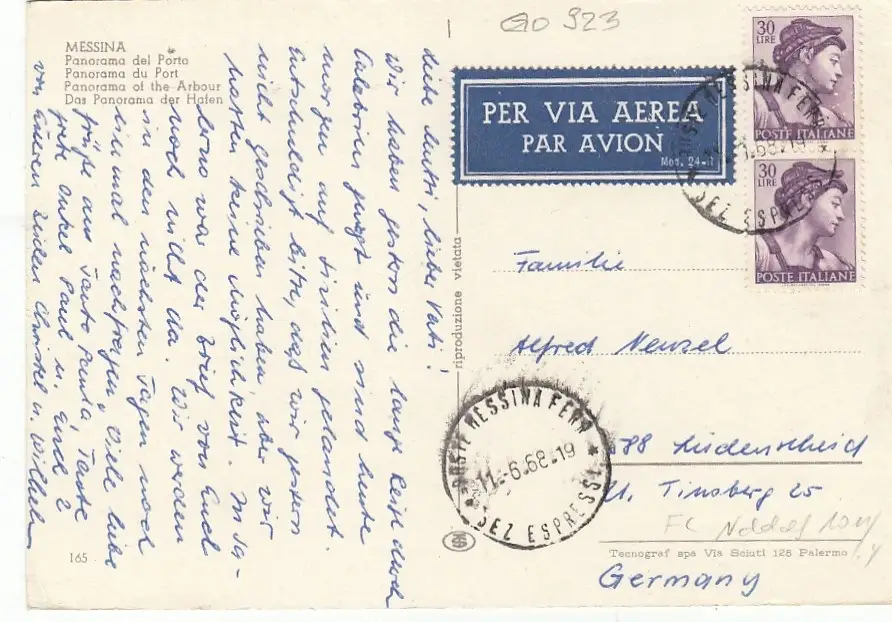 MESSINA
Panorama del Porto
Panorama du Port
Panorama of the Arbour
Das Panorama der Hafen
Liebe Mutti, lieber Vati!
Wir haben gestern die lange Reise durch
Calabrien gut und sind heute
morgen auf Sizilien gelandet.
Entschuldigt bitte, daß wir gestern
nicht geschrieben haben, aber wir
hatten keine Möglichkeit. In Sa-
lerno war der Brief von Euch
noch nicht da. Wir werden
in den nächsten Tagen noch
einmal nachfragen. Viele liebe
Grüße an Tante Tante
Onkel Paul u. Euch 2
von Euren beiden Christel u. Wilhelm
165
riproduzione vietata
PER VIA AEREA
PAR AVION
Mod. 24-R
923
30
LIRE
POSTE ITALIANE
30
LIRE
POSTE ITALIANE
POSTE MESSINA FERR
.68.19
SEZ ESPRESSI
Familie
Alfred Neusel
588 Lüdenscheid
Tinsberg 25
Germany
POSTE MESSINA FERR
11.-6.68.19
SEZ ESPRESSI
Tecnograf spa Via Sciuti 128 Palermo